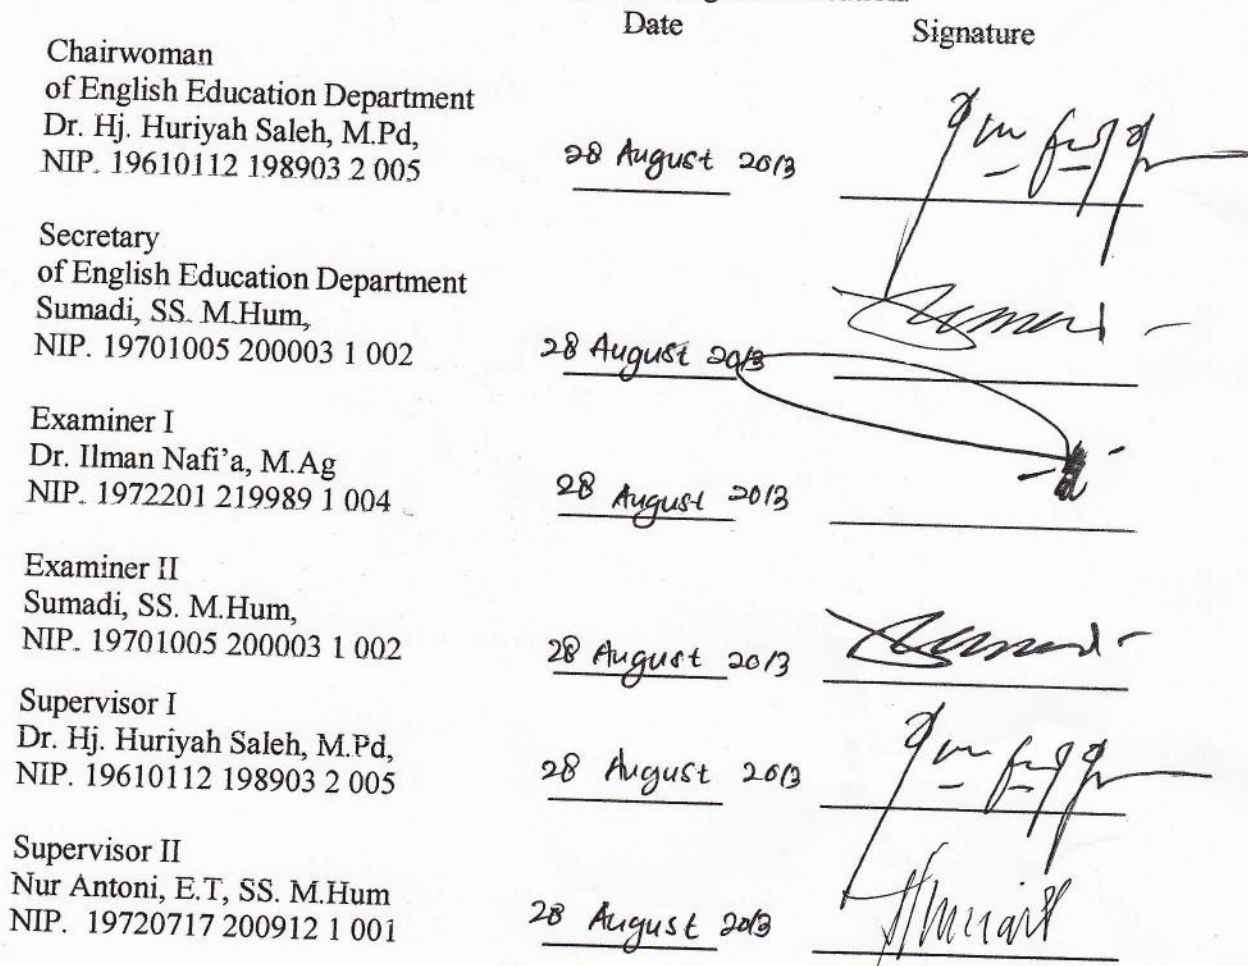 Date Signature
Chairwoman
of English Education Department
Dr. Hj. Huriyah Saleh, M.Pd,
NIP. 19610112 198903 2 005 28 August 2013
Secretary
of English Education Department
Sumadi, SS. M.Hum,
NIP. 19701005 200003 1 002 28 August 2013
Examiner I
Dr. Ilman Nafi'a, M.Ag
NIP. 1972201 219989 1 004 28 August 2013
Examiner II
Sumadi, SS. M.Hum,
NIP. 19701005 200003 1 002 28 August 2013
Supervisor I
Dr. Hj. Huriyah Saleh, M.Pd,
NIP. 19610112 198903 2 005 28 August 2013
Supervisor II
Nur Antoni, E.T, SS. M.Hum
NIP. 19720717 200912 1 001 28 August 2013